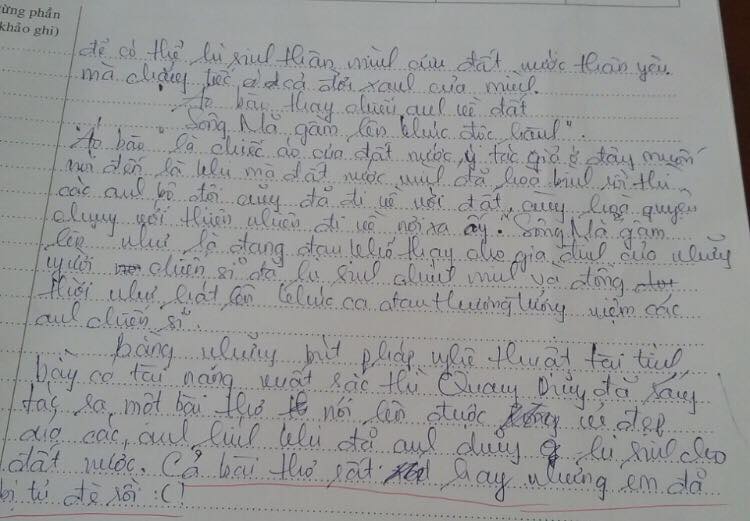 ừng phần
khảo ghi)
để có thể hi sinh thân mình cứu đất nước thân yêu
mà chẳng tiếc cả đời xanh của mình.
"Áo bào thay chiếu anh về đất
Sông Mã gầm lên khúc độc hành".
"Áo bào" là chiếc áo của đất nước, ý tác giả ở đây muốn
nói đến là khi mà đất nước mình đã hoà bình rồi thì
các anh bộ đội cũng đã đi về với đất, cùng hoà quyện
chung với thiên nhiên đi về nơi xa ấy. "Sông Mã gầm
lên" như là đang đau khổ thay cho gia đình của những
người chiến sĩ đã hi sinh chính mình và đồng
thời như hát lên khúc ca đau thương tưởng niệm các
anh chiến sĩ.
Bằng những bút pháp nghệ thuật tài tình
bày có tài năng xuất sắc thì Quang Dũng đã sáng
tác ra một bài thơ nói lên được vẻ đẹp
của các anh lính khi đã anh dũng hi sinh cho
đất nước. Cả bài thơ rất hay nhưng em đã
bị tủ đè rồi :(!